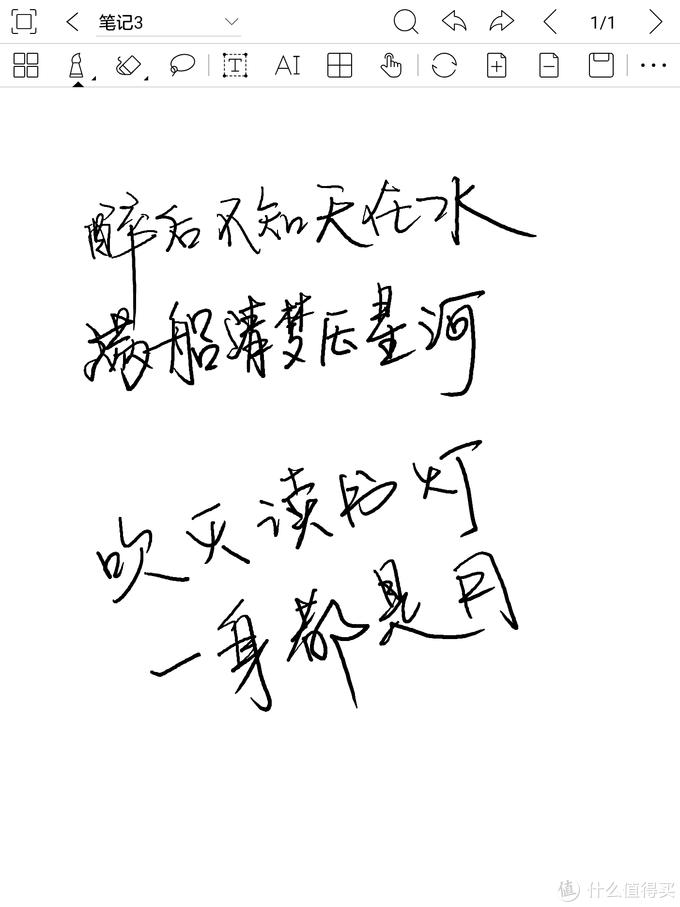 笔记3
1/1
T
AI
醉后不知天在水
满船清梦压星河
吹灭读书灯
一身都是月
值 什么值得买